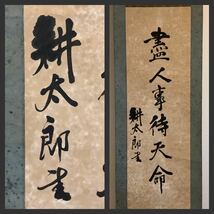 耕太郎書
盡人事待天命
耕太郎書